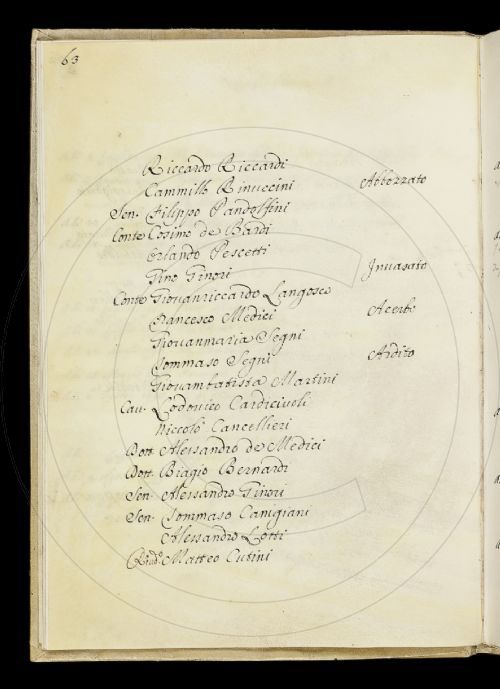 63
Riccardo Riccardi
Cammillo Rinuccini Abbozzato
Sen. Filippo Pandolfini
Conte Cosimo de Bardi
Orlando Pescetti
Pino Ginori Inuasato
Conte Giouanriccardo Langosco
Francesco Medici Acerbo
Giouanmaria Segni
Tommaso Segni Ardito
Giouambatista Martini
Cau. Lodouico Cardiciuoli
Niccolò Cancellieri
Dott. Alessandro de Medici
Dott. Biagio Bernardi
Sen. Alessandro Ginori
Sen. Tommaso Canigiani
Alessandro Lotti
Matteo Cutini